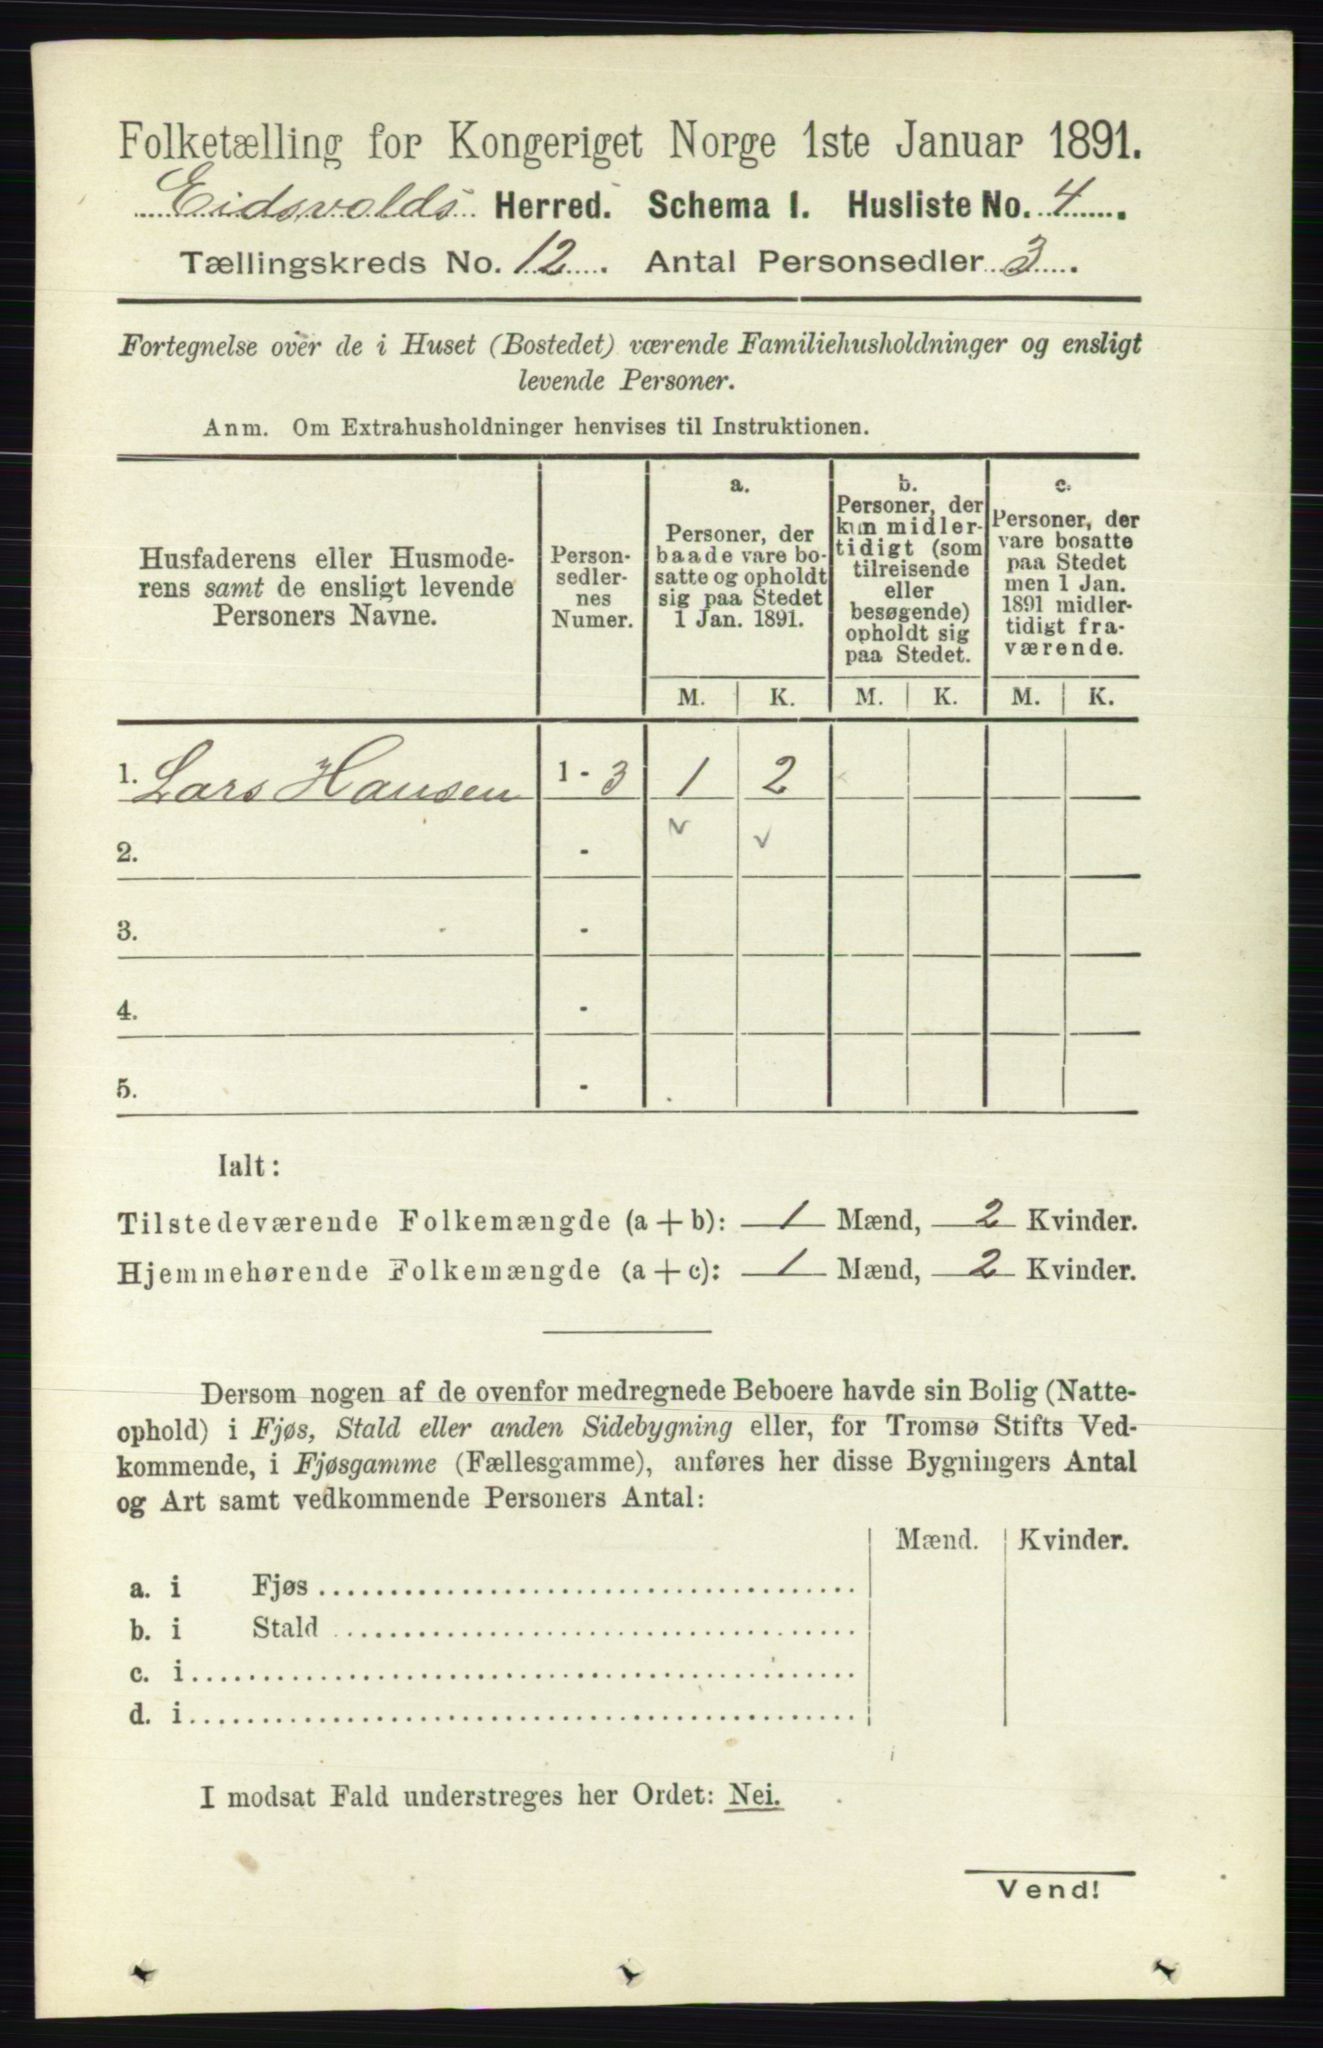 Folketælling for Kongeriget Norge 1ste Januar 1891.
Eidsvolds Herred. Schema I. Husliste No. 4.
Tællingskreds No. 12. Antal Personsedler 3.
Fortegnelse over de i Huset (Bostedet) værende Familiehusholdninger og ensligt
levende Personer.
Anm. Om Extrahusholdninger henvises til Instruktionen.
Husfaderens eller Husmode-
rens samt de ensligt levende
Personers Navne.
Person-
sedler-
nes
Numer.
a.
Personer, der
baade vare bo-
satte og opholdt
sig paa Stedet
1 Jan. 1891.
b.
Personer, der
kun midler-
tidigt (som
tilreisende
eller
besøgende)
opholdt sig
paa Stedet.
c.
Personer, der
vare bosatte
paa Stedet
men 1 Jan.
1891 midler-
tidigt fra-
værende.
M. K. M. K. M. K.
1. Lars Hansen 1 - 3 1 2
2. -
3. -
4. -
5. -
Ialt:
Tilstedeværende Folkemængde (a + b): 1 Mænd, 2 Kvinder.
Hjemmehørende Folkemængde (a + c): 1 Mænd, 2 Kvinder.
Dersom nogen af de ovenfor medregnede Beboere havde sin Bolig (Natte-
ophold) i Fjøs, Stald eller anden Sidebygning eller, for Tromsø Stifts Ved-
kommende, i Fjøsgamme (Fællesgamme), anføres her disse Bygningers Antal
og Art samt vedkommende Personers Antal:
Mænd. Kvinder.
a. i Fjøs
b. i Stald
c. i
d. i
I modsat Fald understreges her Ordet: Nei.
Vend!